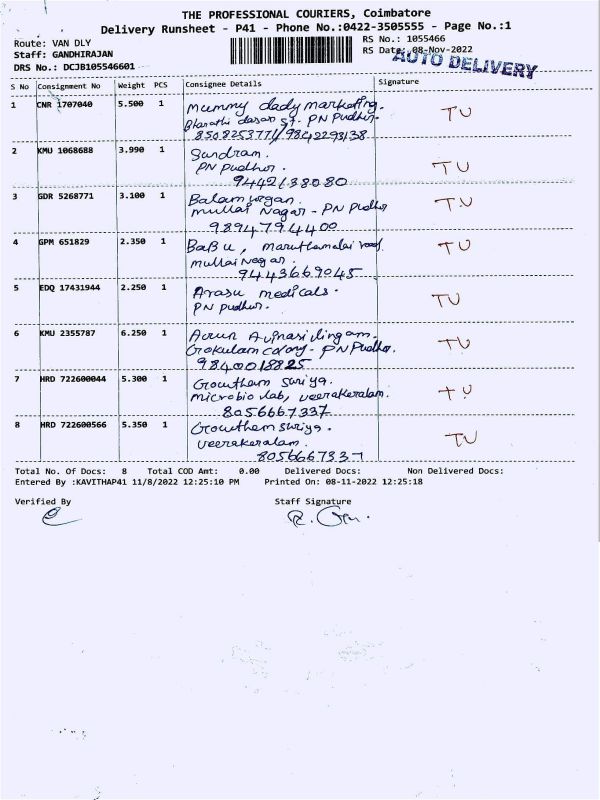 THE PROFESSIONAL COURIERS, Coimbatore
Delivery Runsheet - P41 - Phone No.:0422-3505555 - Page No.:1
Route: VAN DLY
Staff: GANDHIRAJAN
DRS No.: DCJB105546601
RS No.: 1055466
RS Date: 08-Nov-2022
AUTO DELIVERY
S No Consignment No Weight PCS Consignee Details Signature
1 CNR 1707040 5.500 1 Mummy dady marketing. TU
Bharathi dasan st. PN Pudhur.
8508253771/9842293138
2 KMU 1068688 3.990 1 Sundram. TU
PN Pudhur.
9442138080
3 GDR 5268771 3.100 1 Balamurgan. TU
mullai Nagar - PN Pudhur
9894794400
4 GPM 651829 2.350 1 Babu, maruthamalai road TU
mullai Nagar.
9443669045
5 EDQ 17431944 2.250 1 Arasu medicals. TU
PN pudhur.
6 KMU 2355787 6.250 1 Arun Avinasilingam. TU
Gokulam colony - PN Pudhur.
9840018825
7 HRD 722600044 5.300 1 Gowtham suriya. TU
microbio lab, veerakeralam.
8056667337
8 HRD 722600566 5.350 1 Gowtham suriya. TU
veerakeralam.
8056667337
Total No. Of Docs: 8 Total COD Amt: 0.00 Delivered Docs: Non Delivered Docs:
Entered By :KAVITHAP41 11/8/2022 12:25:10 PM Printed On: 08-11-2022 12:25:18
Verified By Staff Signature